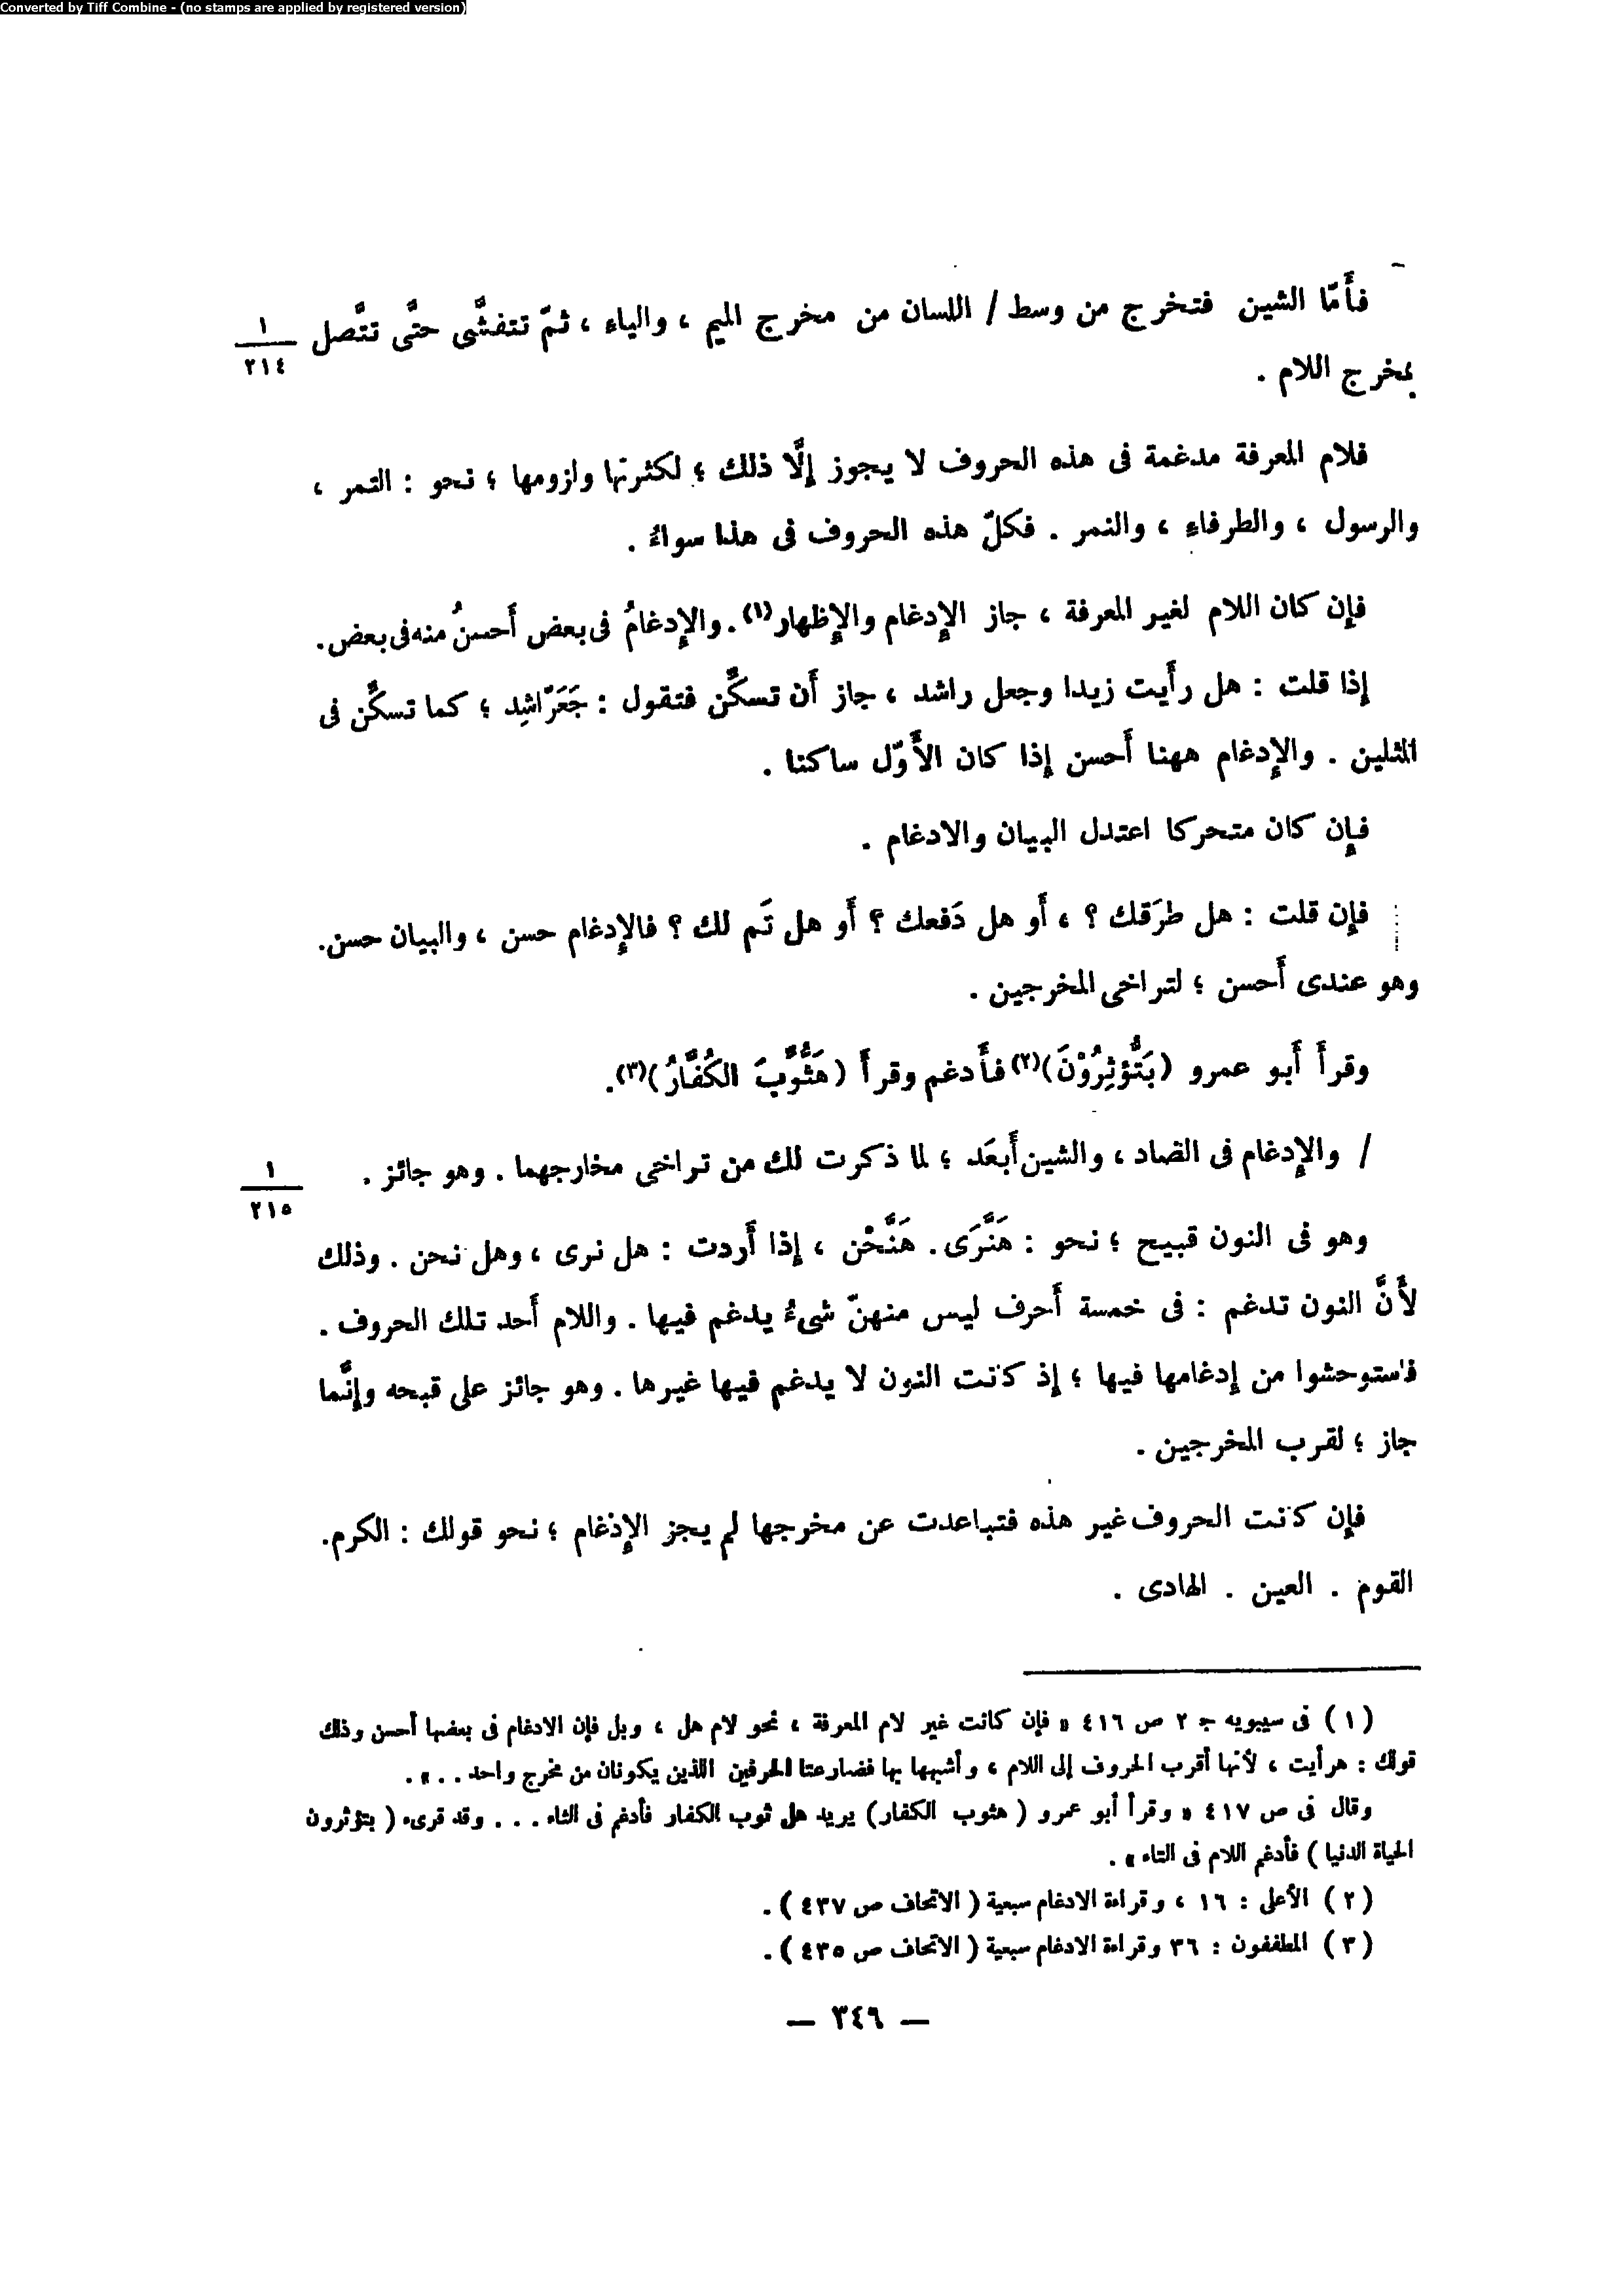 Converted by Tiff Combine - (no stamps are applied by registered version)
فأَمّا الشين فتخرج من وسط / اللسان من مخرج الميم ، والياء ، ثمّ تتفشَّى حتَّى تتَّصل
١
٢١٤
بمخرج اللام .
فلام المعرفة مدغمة فى هذه الحروف لا يجوز إلَّا ذلك ؛ لكثرتها ولزومها ؛ نحو : التمر ،
والرسول ، والطرفاءِ ، والنمر . فكلّ هذه الحروف فى هذا سواءُ .
فإن كان اللام لغير المعرفة ، جاز الإدغام والإظهار(١). والإدغامُ فى بعض أَحسنُ منه فى بعض.
إذا قلت : هل رأَيت زيدا وجعل راشد ، جاز أَن تسكِّن فتقول : جَعَرّاشِد ؛ كما تسكِّن فى
المثلين . والإدغام ههنا أَحسن إذا كان الأَوّل ساكنا .
فإن كان متحركا اعتدل البيان والادغام .
فإن قلت : هل طرَقك ؟ ، أَو هل دَفعك ؟ أَو هل تَم لك ؟ فالإدغام حسن ، والبيان حسن.
وهو عندى أَحسن ؛ لتراخى المخرجين .
وقرأَ أَبو عمرو (بَتُّؤثِرُوْنَ)(٢) فأَدغم وقرأَ (هَثُّوِّبَ الكُفَّارُ)(٣).
/ والإدغام فى الضاد ، والشين أَبعَد ؛ لما ذكرت لك من تراخى مخارجهما . وهو جائز .
١
٢١٥
وهو فى النون قبيح ؛ نحو : هَنَّرَى. هَنَّحْن ، إذا أَردت : هل نرى ، وهل نحن . وذلك
لأَنَّ النون تدغم : فى خمسة أَحرف ليس منهنّ شىءُ يدغم فيها . واللام أَحد تلك الحروف .
فاستوحشوا من إدغامها فيها ؛ إذ كانت النون لا يدغم فيها غيرها . وهو جائز على قبحه وإنَّما
جاز ؛ لقرب المخرجين .
فإن كانت الحروف غير هذه فتباعدت عن مخرجها لم يجز الإدغام ؛ نحو قولك : الكرم.
القوم . العين . الهادى .
(١) فى سيبويه ج ٢ ص ٤١٦ « فإن كانت غير لام المعرفة ، نحو لام هل ، وبل فإن الادغام فى بعضها أحسن وذلك
قولك : هرأيت ، لأنها أقرب الحروف إلى اللام ، وأشبهها بها فضارعتا الحرفين اللذين يكونان من مخرج واحد . . » .
وقال فى ص ٤١٧ « وقرأ أبو عمرو ( هثوب الكفار) يريد هل ثوب الكفار فأدغم فى الثاء . . . وقد قرىء ( بتؤثرون
الحياة الدنيا ) فأدغم اللام فى التاء » .
(٢) الأعلى : ١٦ ، وقراءة الادغام سبعية ( الاتحاف ص ٤٣٧ ) .
(٣) المطففون : ٣٦ وقراءة الادغام سبعية ( الاتحاف ص ٤٣٥ ) .
— ٣٤٦ —